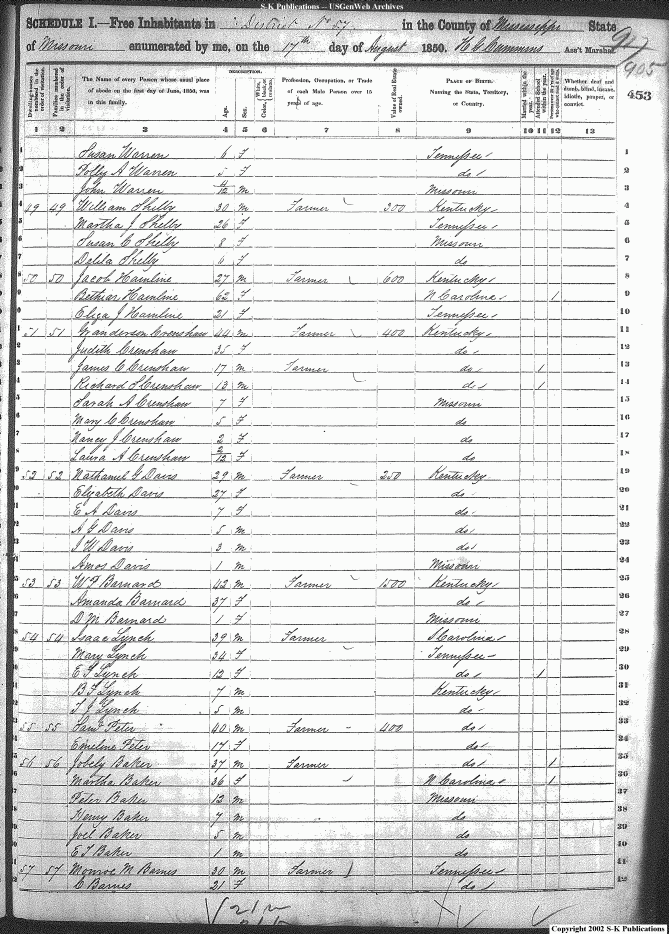 S-K Publications -- USGenWeb Archives
SCHEDULE I.—Free Inhabitants in District No 57 in the County of Mississippi State
of Missouri enumerated by me, on the 17th day of August 1850. Ass't Marshal.
917
905
453
DESCRIPTION.
Dwelling-houses numbered in the order of visitation. Families numbered in the order of visitation. The Name of every Person whose usual place of abode on the first day of June, 1850, was in this family. Age. Sex. Color, White, black, or mulatto. Profession, Occupation, or Trade of each Male Person over 15 years of age. Value of Real Estate owned. PLACE OF BIRTH. Naming the State, Territory, or Country. Married within the year. Attended School within the year. Whether deaf and dumb, blind, insane, idiotic, pauper, or convict.
1 2 3 4 5 6 7 8 9 10 11 12 13
1 Susan Warren 6 F Tennessee 1
2 Polly A Warren 5 F do 2
3 John Warren /12 m Missouri 3
4 49 49 William Shelby 30 m Farmer 300 Kentucky 4
5 Martha J Shelby 26 F Tennessee 5
6 Susan C Shelby 8 F Missouri 6
7 Delila Shelby 6 F do 7
8 50 50 Jacob Hamline 27 m Farmer 600 Kentucky 8
9 Hamline 62 F N Carolina 1 9
10 Eliza J Hamline 21 F Tennessee 10
11 51 51 Granderson Crenshaw 44 m Farmer 400 Kentucky 11
12 Judith Crenshaw 35 F do 12
13 James C Crenshaw 17 m Farmer do 1 13
14 Richard S Crenshaw 13 m do 1 14
15 Sarah A Crenshaw 7 F Missouri 15
16 Mary C Crenshaw 5 F do 16
17 Nancy J Crenshaw 2 F do 17
18 Laura A Crenshaw 2/12 F do 18
19 52 52 Nathaniel G Davis 29 m Farmer 250 Kentucky 19
20 Elizabeth Davis 27 F do 20
21 E A Davis 7 F do 21
22 A G Davis 5 m do 22
23 J W Davis 3 m do 23
24 Amos Davis 1 m Missouri 24
25 53 53 W F Barnard 42 m Farmer 1500 Kentucky 25
26 Amanda Barnard 37 F do 26
27 D M Barnard 1 F Missouri 27
28 54 54 Isaac Lynch 39 m Farmer S Carolina 28
29 Mary Lynch 34 F Tennessee 29
30 E S Lynch 12 F do 1 30
31 B F Lynch 7 m Kentucky 31
32 T J Lynch 5 m do 32
33 55 55 Saml Peter 40 m Farmer 400 do 33
34 Emeline Peter 17 F do 34
35 56 56 Baker 37 m Farmer do 1 35
36 Martha Baker 36 F N Carolina 1 36
37 Peter Baker 12 m Missouri 37
38 Henry Baker 7 m do 38
39 Joel Baker 5 m do 39
40 E T Baker 1 m do 40
41 57 57 Monroe M Barnes 30 m Farmer Tennessee 41
42 C Barnes 21 F do 42
21
Copyright 2002 S-K Publications